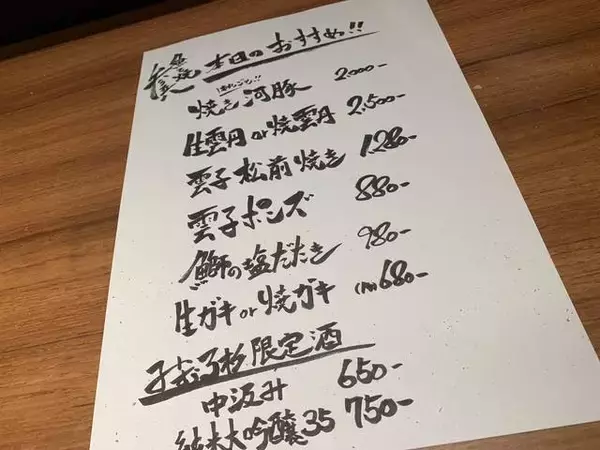 本日のおすすめ!!
焼き河豚 2.000-
生雲丹or焼雲丹 2,500-
雲子松前焼き 1.280-
雲子ポンズ 880-
鰤の塩だたき 980-
生ガキor焼ガキ (1P) 680-
限定酒
中汲み 650-
純米大吟醸35 750-